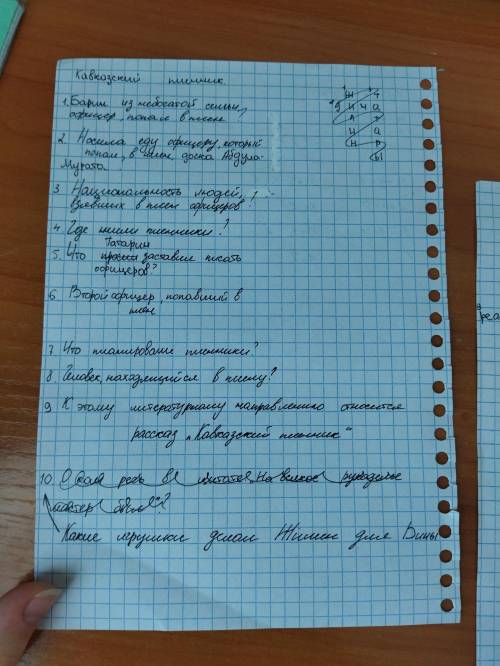 Кавказский пленник
1. Барин из небогатой семьи,
офицер, попал в плен
2. Носила еду офицеру, который
попал, в плен, дочка Абдула-
Мурата.
3 Национальность людей,
взявших в плен офицеров!
4. Где жили пленники?
татарин
5. Что заставил писать
офицеров?
6 Второй офицер, попавший в
плен
7. Что планировали пленники?
8. Человек, находящийся в плену?
9 К этому литературному направлению относится
рассказ "Кавказский пленник"
10. О ком речь в цитате, На всякое рукоделье
мастер был"?
Какие игрушки делал Жилин для Дины
Ж
Д и н а